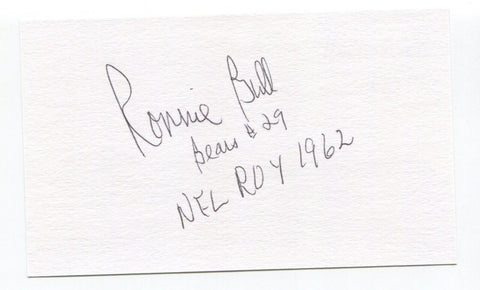 Ronnie Bull
Bears #29
NFL ROY 1962